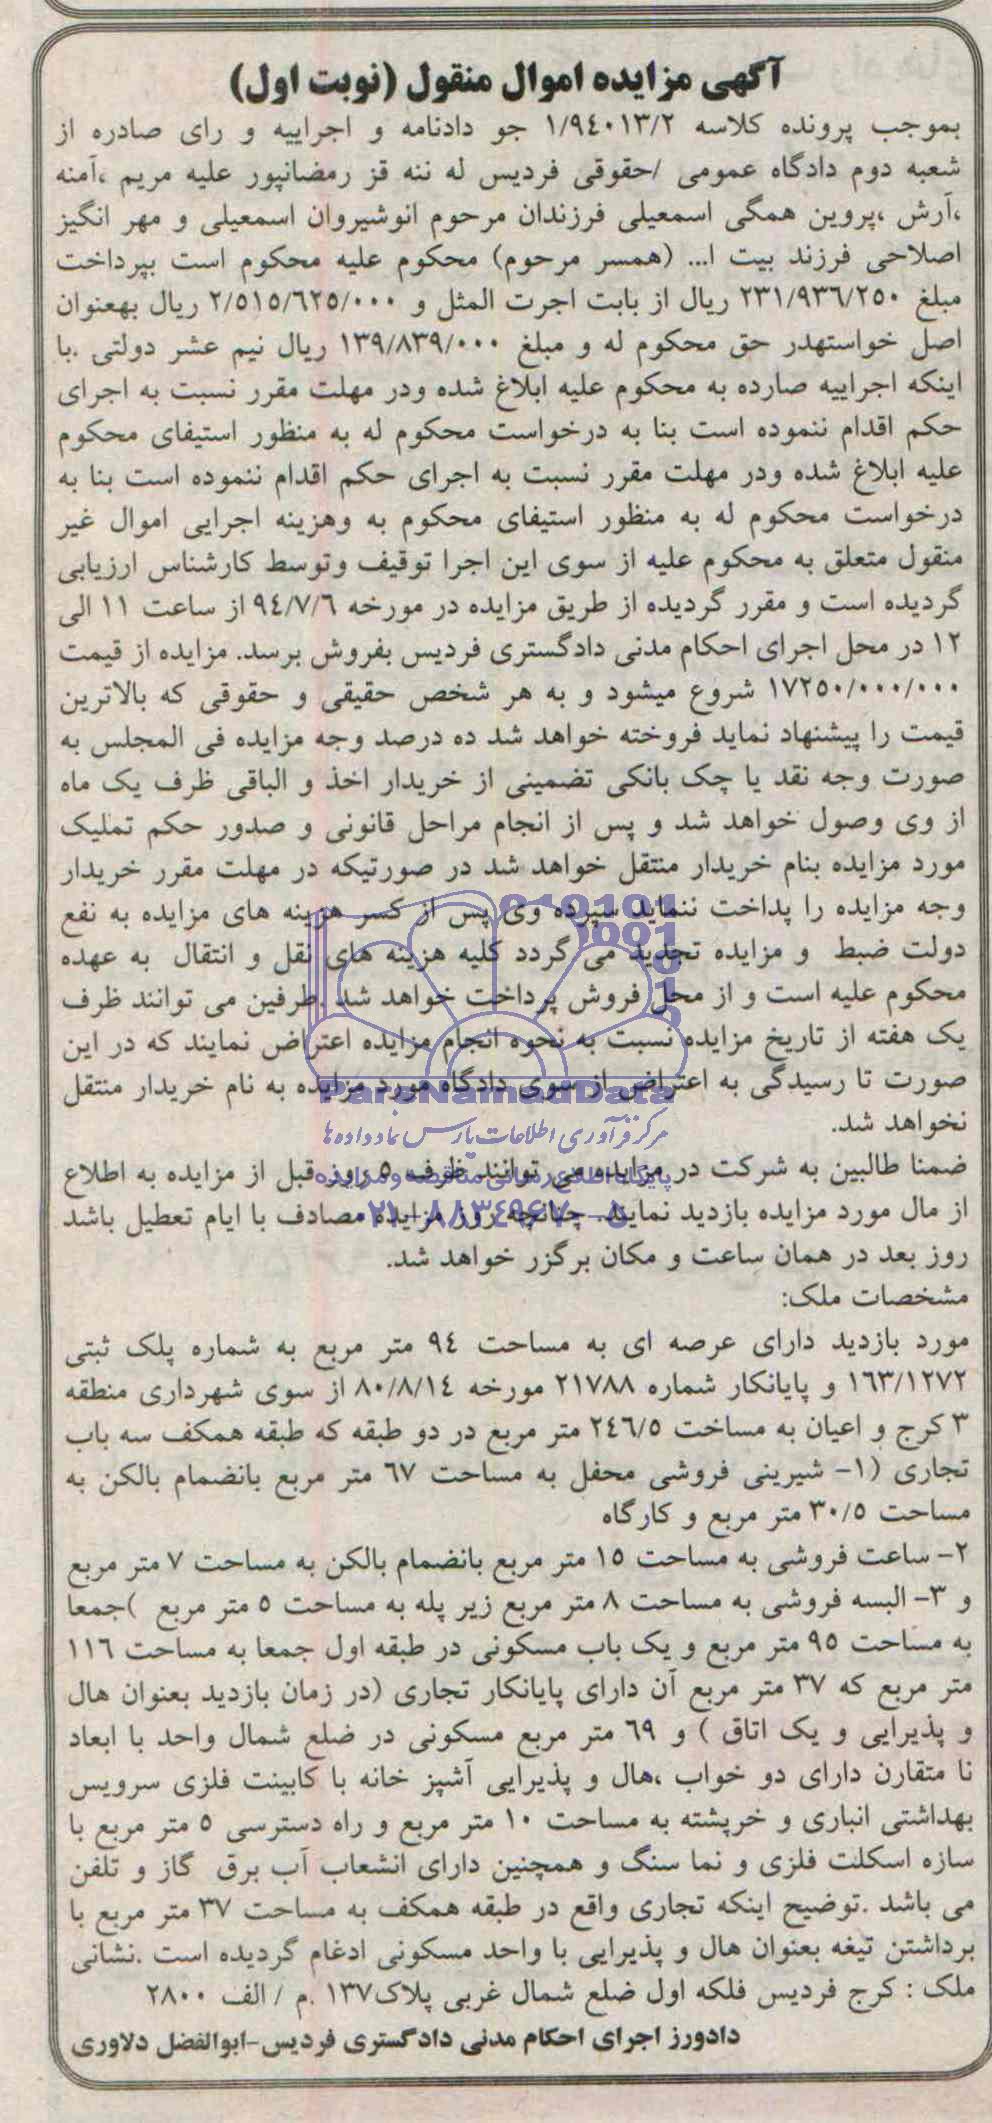 آگهی مزایده اموال منقول (نوبت اول)
بموجب پرونده کلاسه ۱/۹٤۰۱۳/۲ جو دادنامه و اجراییه و رای صادره از
شعبه دوم دادگاه عمومی /حقوقی فردیس له ننه قز رمضانپور علیه مریم ،آمنه
،آرش ،پروین همگی اسمعیلی فرزندان مرحوم انوشیروان اسمعیلی و مهر انگیز
اصلاحی فرزند بیت ا... (همسر مرحوم) محکوم علیه محکوم است بپرداخت
مبلغ ۲۳۱/۹۳٦/۲۵۰ ریال از بابت اجرت المثل و ۲/۵۱۵/٦۲۵/۰۰۰ ریال بهعنوان
اصل خواستهدر حق محکوم له و مبلغ ۱۳۹/۸۳۹/۰۰۰ ریال نیم عشر دولتی .با
اینکه اجراییه صارده به محکوم علیه ابلاغ شده ودر مهلت مقرر نسبت به اجرای
حکم اقدام ننموده است بنا به درخواست محکوم له به منظور استیفای محکوم
علیه ابلاغ شده ودر مهلت مقرر نسبت به اجرای حکم اقدام ننموده است بنا به
درخواست محکوم له به منظور استیفای محکوم به وهزینه اجرایی اموال غیر
منقول متعلق به محکوم علیه از سوی این اجرا توقیف وتوسط کارشناس ارزیابی
گردیده است و مقرر گردیده از طریق مزایده در مورخه ۹٤/۷/٦ از ساعت ۱۱ الی
۱۲ در محل اجرای احکام مدنی دادگستری فردیس بفروش برسد. مزایده از قیمت
۱۷۲۵۰/۰۰۰/۰۰۰ شروع میشود و به هر شخص حقیقی و حقوقی که بالاترین
قیمت را پیشنهاد نماید فروخته خواهد شد ده درصد وجه مزایده فی المجلس به
صورت وجه نقد یا چک بانکی تضمینی از خریدار اخذ و الباقی ظرف یک ماه
از وی وصول خواهد شد و پس از انجام مراحل قانونی و صدور حکم تملیک
مورد مزایده بنام خریدار منتقل خواهد شد در صورتیکه در مهلت مقرر خریدار
وجه مزایده را پداخت ننماید سپرده وی پس از کسر هزینه های مزایده به نفع
دولت ضبط و مزایده تجدید می گردد کلیه هزینه های نقل و انتقال به عهده
محکوم علیه است و از محل فروش پرداخت خواهد شد .طرفین می توانند ظرف
یک هفته از تاریخ مزایده نسبت به نحوه انجام مزایده اعتراض نمایند که در این
صورت تا رسیدگی به اعتراض از سوی دادگاه مورد مزایده به نام خریدار منتقل
ParsNamadData
نخواهد شد.
مرکز فرآوری اطلاعات پارس نماد داده ها
ضمنا طالبین به شرکت در مزایده می توانند ظرف ۵ روز قبل از مزایده به اطلاع
پایگاه اطلاع رسانی مناقصه و مزایده
از مال مورد مزایده بازدید نمایند. چنانچه روز مزایده مصادف با ایام تعطیل باشد
۰۲۱-۸۸۳٤۹٦۷۰-۵
روز بعد در همان ساعت و مکان برگزر خواهد شد.
مشخصات ملک:
مورد بازدید دارای عرصه ای به مساحت ۹٤ متر مربع به شماره پلک ثبتی
۱٦۳/۱۲۷۲ و پایانکار شماره ۲۱۷۸۸ مورخه ۸۰/۸/۱٤ از سوی شهرداری منطقه
۳ کرج و اعیان به مساخت ۲٤٦/۵ متر مربع در دو طبقه که طبقه همکف سه باب
تجاری (۱- شیرینی فروشی محفل به مساحت ٦۷ متر مربع بانضمام بالکن به
مساحت ۳۰/۵ متر مربع و کارگاه
۲- ساعت فروشی به مساحت ۱۵ متر مربع بانضمام بالکن به مساحت ۷ متر مربع
و ۳- البسه فروشی به مساحت ۸ متر مربع زیر پله به مساحت ۵ متر مربع )جمعا
به مساحت ۹۵ متر مربع و یک باب مسکونی در طبقه اول جمعا به مساحت ۱۱٦
متر مربع که ۳۷ متر مربع آن دارای پایانکار تجاری (در زمان بازدید بعنوان هال
و پذیرایی و یک اتاق ) و ٦۹ متر مربع مسکونی در ضلع شمال واحد با ابعاد
نا متقارن دارای دو خواب ،هال و پذیرایی آشپز خانه با کابینت فلزی سرویس
بهداشتی انباری و خرپشته به مساحت ۱۰ متر مربع و راه دسترسی ۵ متر مربع با
سازه اسکلت فلزی و نما سنگ و همچنین دارای انشعاب آب برق گاز و تلفن
می باشد .توضیح اینکه تجاری واقع در طبقه همکف به مساحت ۳۷ متر مربع با
برداشتن تیغه بعنوان هال و پذیرایی با واحد مسکونی ادغام گردیده است .نشانی
ملک : کرج فردیس فلکه اول ضلع شمال غربی پلاک۱۳۷ .م / الف ۲۸۰۰
دادورز اجرای احکام مدنی دادگستری فردیس-ابوالفضل دلاوری